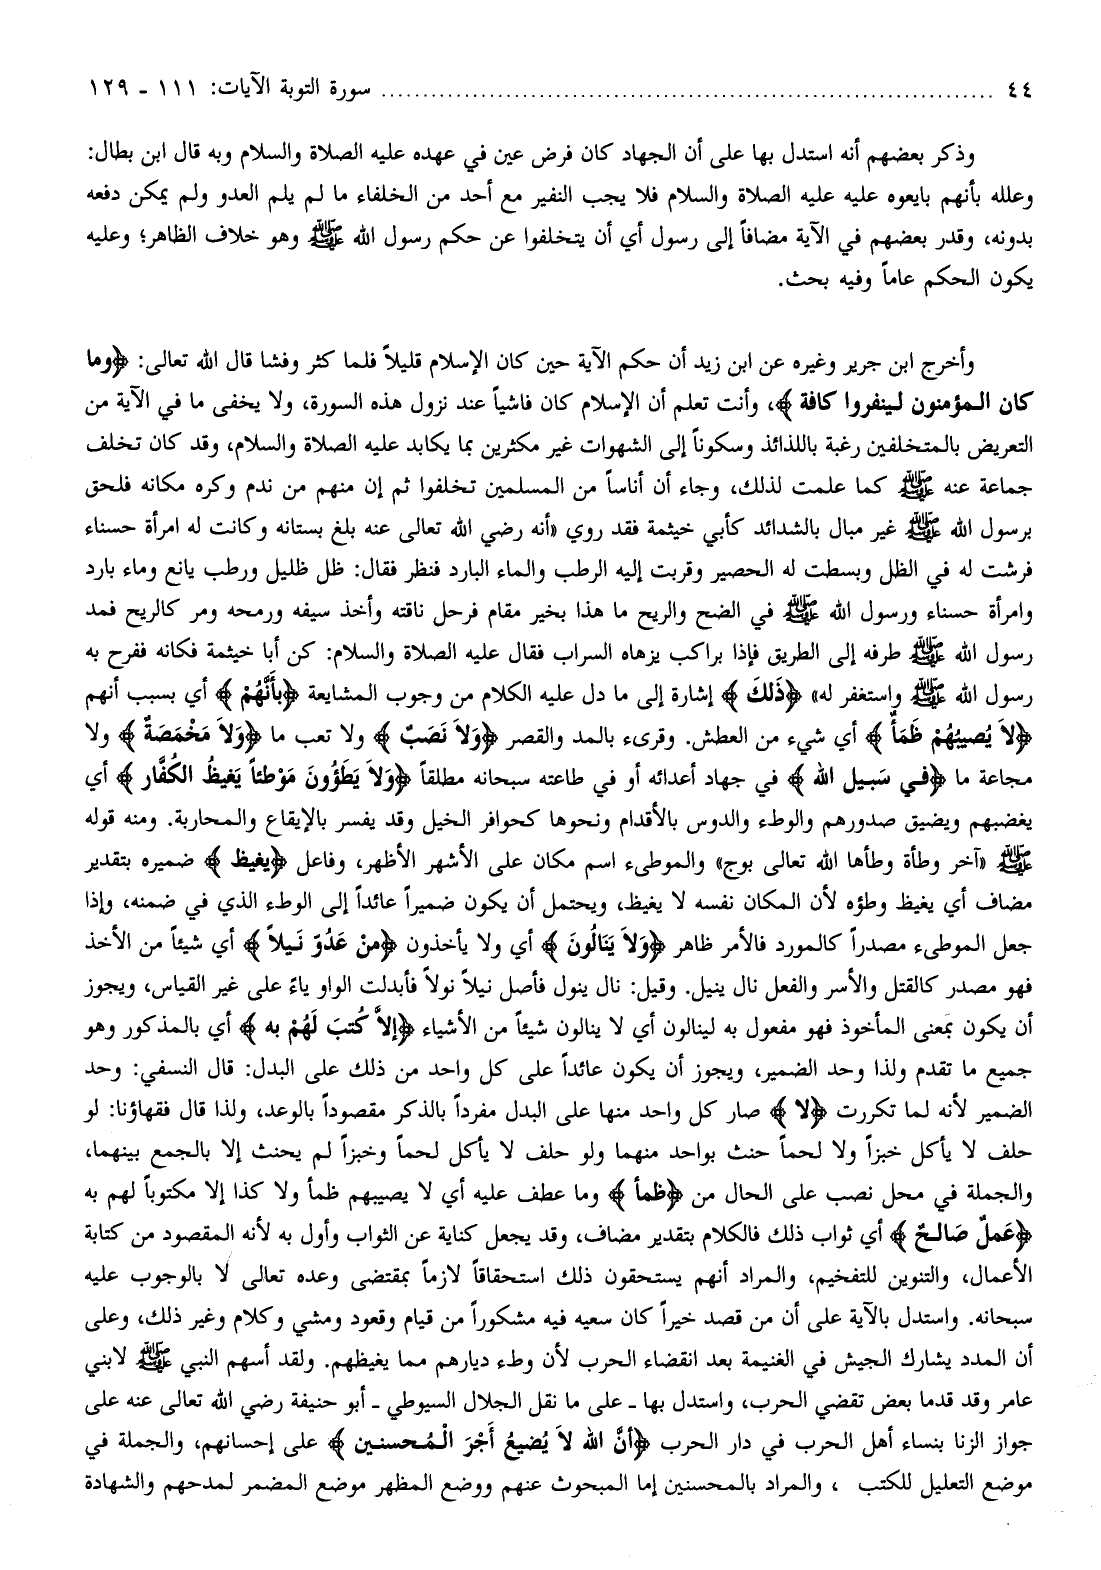 ٤٤ ........................................................................ سورة التوبة الآيات: ١١١ ـ ١٢٩
وذكر بعضهم أنه استدل بها على أن الجهاد كان فرض عين في عهده عليه الصلاة والسلام وبه قال ابن بطال:
وعلله بأنهم بايعوه عليه عليه الصلاة والسلام فلا يجب النفير مع أحد من الخلفاء ما لم يلم العدو ولم يمكن دفعه
بدونه، وقدر بعضهم في الآية مضافاً إلى رسول أي أن يتخلفوا عن حكم رسول الله ﷺ وهو خلاف الظاهر؛ وعليه
يكون الحكم عاماً وفيه بحث.
وأخرج ابن جرير وغيره عن ابن زيد أن حكم الآية حين كان الإسلام قليلاً فلما كثر وفشا قال الله تعالى: ﴿وما
كان المؤمنون لينفروا كافة﴾، وأنت تعلم أن الإسلام كان فاشياً عند نزول هذه السورة، ولا يخفى ما في الآية من
التعريض بالمتخلفين رغبة باللذائذ وسكوناً إلى الشهوات غير مكترثين بما يكابد عليه الصلاة والسلام، وقد كان تخلف
جماعة عنه ﷺ كما علمت لذلك، وجاء أن أناساً من المسلمين تخلفوا ثم إن منهم من ندم وكره مكانه فلحق
برسول الله ﷺ غير مبال بالشدائد كأبي خيثمة فقد روي «أنه رضي الله تعالى عنه بلغ بستانه وكانت له امرأة حسناء
فرشت له في الظل وبسطت له الحصير وقربت إليه الرطب والماء البارد فنظر فقال: ظل ظليل ورطب يانع وماء بارد
وامرأة حسناء ورسول الله ﷺ في الضح والريح ما هذا بخير مقام فرحل ناقته وأخذ سيفه ورمحه ومر كالريح فمد
رسول الله ﷺ طرفه إلى الطريق فإذا براكب يزهاه السراب فقال عليه الصلاة والسلام: كن أبا خيثمة فكانه ففرح به
رسول الله ﷺ واستغفر له» ﴿ذَلكَ﴾ إشارة إلى ما دل عليه الكلام من وجوب المشايعة ﴿بأَنَّهُمْ﴾ أي بسبب أنهم
﴿لاَ يُصيبُهُمْ ظَمَأٌ﴾ أي شيء من العطش. وقرىء بالمد والقصر ﴿وَلاَ نَصَبٌ﴾ ولا تعب ما ﴿وَلاَ مَخْمَصَةٌ﴾ ولا
مجاعة ما ﴿في سَبيل الله﴾ في جهاد أعدائه أو في طاعته سبحانه مطلقاً ﴿وَلاَ يَطَؤُونَ مَوْطئاً يَغيظُ الكُفَّار﴾ أي
يغضبهم ويضيق صدورهم والوطء والدوس بالأقدام ونحوها كحوافر الخيل وقد يفسر بالإيقاع والمحاربة. ومنه قوله
ﷺ «آخر وطأة وطأها الله تعالى بوج» والموطىء اسم مكان على الأشهر الأظهر، وفاعل ﴿يغيظ﴾ ضميره بتقدير
مضاف أي يغيظ وطؤه لأن المكان نفسه لا يغيظ، ويحتمل أن يكون ضميراً عائداً إلى الوطء الذي في ضمنه، وإذا
جعل الموطىء مصدراً كالمورد فالأمر ظاهر ﴿وَلاَ يَنَالُونَ﴾ أي ولا يأخذون ﴿منْ عَدُوّ نَيلاً﴾ أي شيئاً من الأخذ
فهو مصدر كالقتل والأسر والفعل نال ينيل. وقيل: نال ينول فأصل نيلاً نولاً فأبدلت الواو ياءً على غير القياس، ويجوز
أن يكون بمعنى المأخوذ فهو مفعول به لينالون أي لا ينالون شيئاً من الأشياء ﴿إلاَّ كُتبَ لَهُمْ به﴾ أي بالمذكور وهو
جميع ما تقدم ولذا وحد الضمير، ويجوز أن يكون عائداً على كل واحد من ذلك على البدل: قال النسفي: وحد
الضمير لأنه لما تكررت ﴿لا﴾ صار كل واحد منها على البدل مفرداً بالذكر مقصوداً بالوعد، ولذا قال فقهاؤنا: لو
حلف لا يأكل خبزاً ولا لحماً حنث بواحد منهما ولو حلف لا يأكل لحماً وخبزاً لم يحنث إلا بالجمع بينهما،
والجملة في محل نصب على الحال من ﴿ظمأ﴾ وما عطف عليه أي لا يصيبهم ظمأ ولا كذا إلا مكتوباً لهم به
﴿عَملٌ صَالحٌ﴾ أي ثواب ذلك فالكلام بتقدير مضاف، وقد يجعل كناية عن الثواب وأول به لأنه المقصود من كتابة
الأعمال، والتنوين للتفخيم، والمراد أنهم يستحقون ذلك استحقاقاً لازماً بمقتضى وعده تعالى لا بالوجوب عليه
سبحانه. واستدل بالآية على أن من قصد خيراً كان سعيه فيه مشكوراً من قيام وقعود ومشي وكلام وغير ذلك، وعلى
أن المدد يشارك الجيش في الغنيمة بعد انقضاء الحرب لأن وطء ديارهم مما يغيظهم. ولقد أسهم النبي ﷺ لابني
عامر وقد قدما بعض تقضي الحرب، واستدل بها ـ على ما نقل الجلال السيوطي ـ أبو حنيفة رضي الله تعالى عنه على
جواز الزنا بنساء أهل الحرب في دار الحرب ﴿أنَّ الله لاَ يُضيعُ أَجْرَ الْمُحسنين﴾ على إحسانهم، والجملة في
موضع التعليل للكتب ، والمراد بالمحسنين إما المبحوث عنهم ووضع المظهر موضع المضمر لمدحهم والشهادة